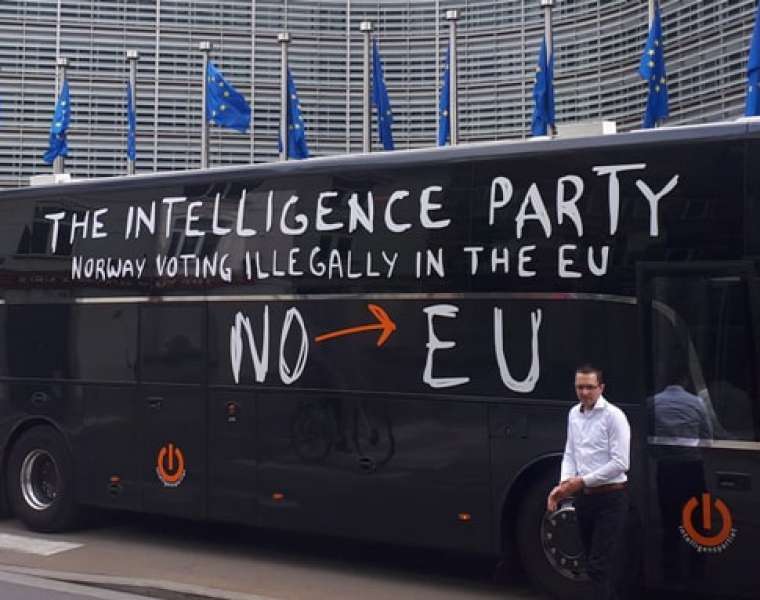 THE INTELLIGENCE PARTY
NORWAY VOTING ILLEGALLY IN THE EU
NO → EU
intelligenspartiet